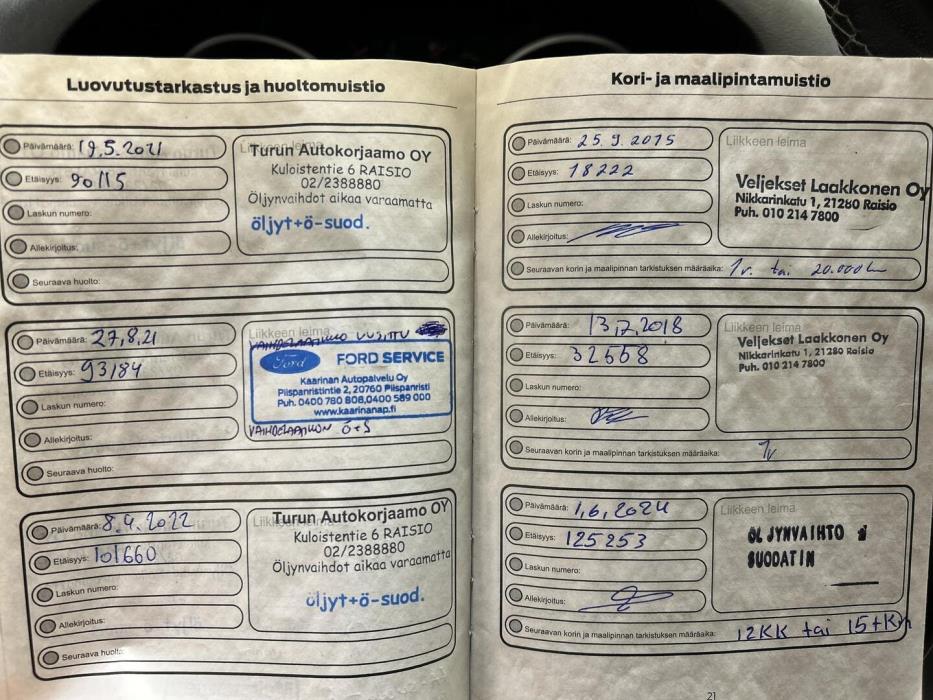 Luovutustarkastus ja huoltomuistio
Päivämäärä: 19.5.2021
Etäisyys: 90115
Laskun numero:
Allekirjoitus:
Seuraava huolto:
Liikkeen leima
Turun Autokorjaamo OY
Kuloistentie 6 RAISIO
02/2388880
Öljynvaihdot aikaa varaamatta
öljyt+ö-suod.
Päivämäärä: 27,8,21
Etäisyys: 93184
Laskun numero:
Allekirjoitus:
Seuraava huolto:
Liikkeen leima
VAIHDELAATIKKO UUSITTU
Ford FORD SERVICE
Kaarinan Autopalvelu Oy
Piispanristintie 2, 20760 Piispanristi
Puh. 0400 780 808,0400 589 000
www.kaarinanap.fi
VAIHDELAATIKON Ö+S
Päivämäärä: 8.4.2022
Etäisyys: 101660
Laskun numero:
Allekirjoitus:
Seuraava huolto:
Liikkeen leima
Turun Autokorjaamo OY
Kuloistentie 6 RAISIO
02/2388880
Öljynvaihdot aikaa varaamatta
öljyt+ö-suod.
Kori- ja maalipintamuistio
Päivämäärä: 25.9.2015
Etäisyys: 18222
Laskun numero:
Allekirjoitus:
Seuraavan korin ja maalipinnan tarkistuksen määräaika: 1v. tai 20.000
Liikkeen leima
Veljekset Laakkonen Oy
Nikkarinkatu 1, 21280 Raisio
Puh. 010 214 7800
Päivämäärä: 13.7.2018
Etäisyys: 32558
Laskun numero:
Allekirjoitus:
Seuraavan korin ja maalipinnan tarkistuksen määräaika: 1v
Liikkeen leima
Veljekset Laakkonen Oy
Nikkarinkatu 1, 21280 Raisio
Puh. 010 214 7800
Päivämäärä: 1,6,2024
Etäisyys: 125253
Laskun numero:
Allekirjoitus:
Seuraavan korin ja maalipinnan tarkistuksen määräaika: 12KK tai 15tKm
Liikkeen leima
ÖLJYNVAIHTO
SUODATIN
21